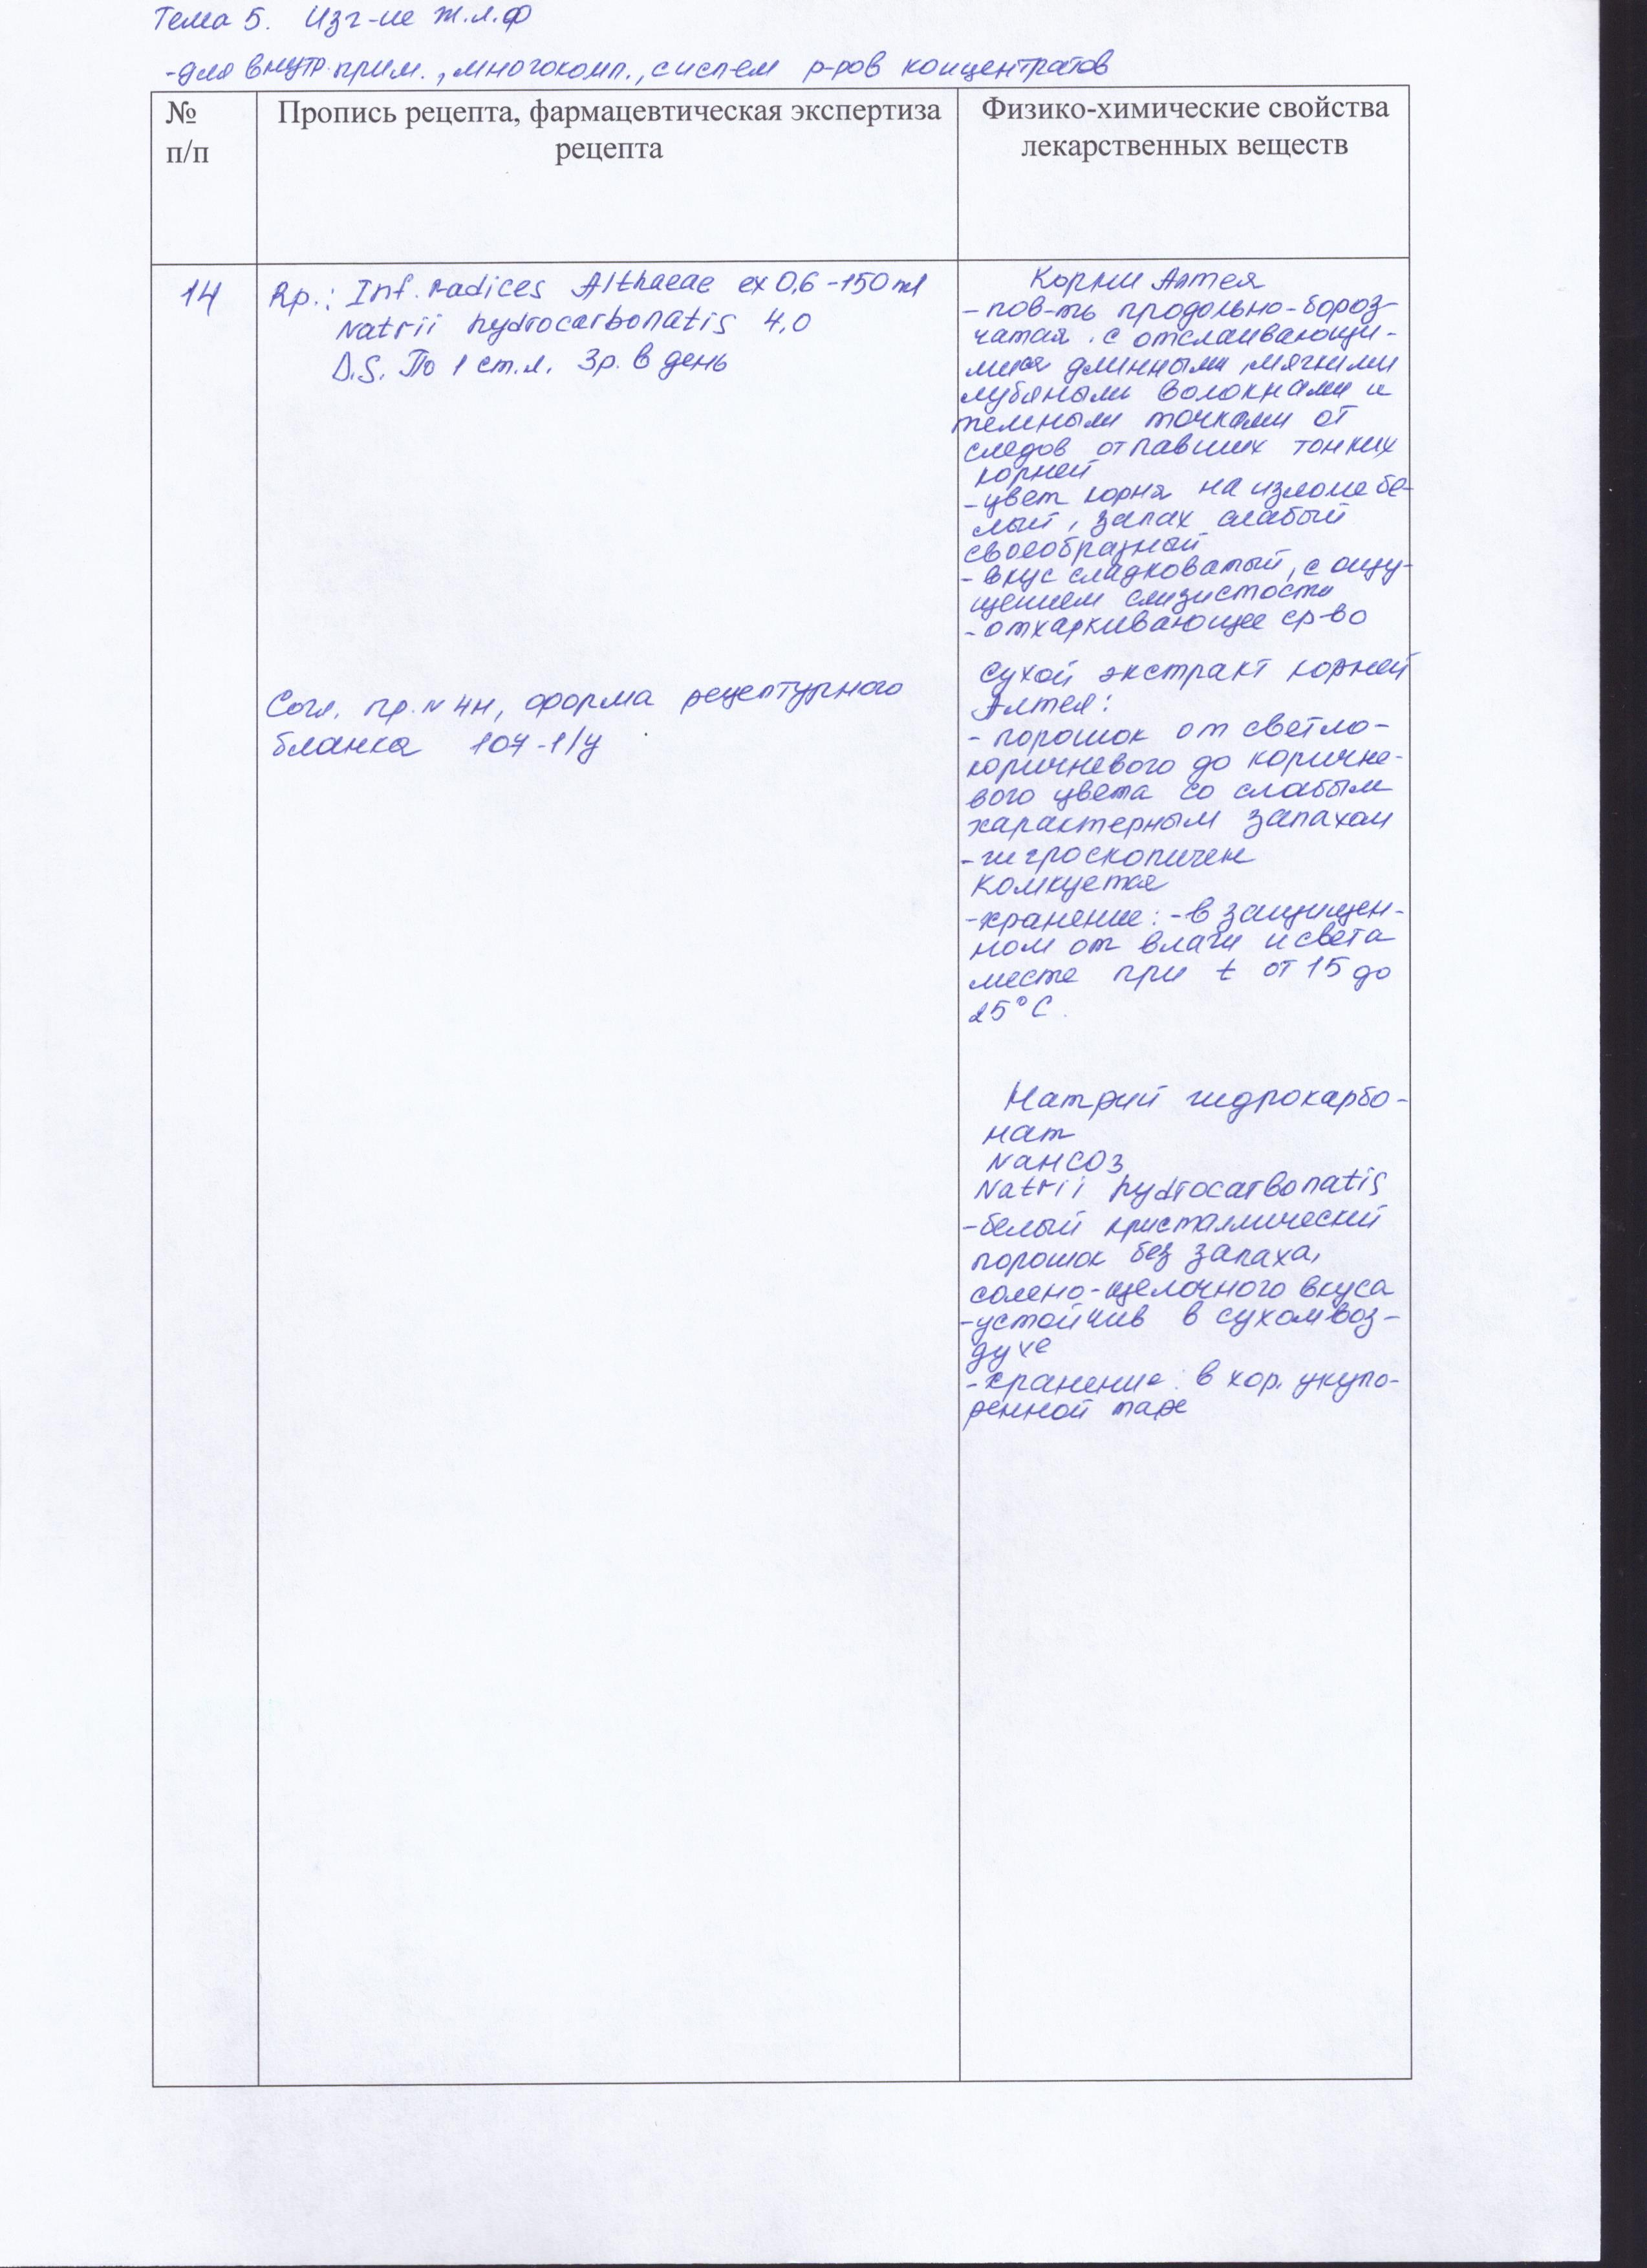 Тема 5. Изг-ие Ж.Л.Ф
-для внутр. прим., многокомп., систем р-ров концентратов
№
п/п
Пропись рецепта, фармацевтическая экспертиза
рецепта
Физико-химические свойства
лекарственных веществ
14
Rp.: Inf. radices Althaeae ex 0,6 - 150 ml
Natrii hydrocarbonatis 4,0
D.S. По 1 ст.л. 3р. в день
Согл. пр. N 4н, форма рецептурного
бланка 107-1/у
Корни Алтея
- пов-ть продольно-бороз
чатая. с отслаивающи-
мися длинными, мягкими
лубяными волокнами и
темными точками от
следов отпавших тонких
корней
- цвет корня на изломе бе-
лый, запах слабый
своеобразный
- вкус сладковатый, с ощу-
щением слизистости
- отхаркивающее ср-во
Сухой экстракт корней
Алтея:
- порошок от светло-
коричневого до коричне-
вого цвета со слабым
характерным запахом
- гигроскопичен
комкуется
- хранение: - в защищен-
ном от влаги и света
месте при t от 15 до
25°C.
Натрий гидрокарбо-
нат
NaHCO3
Natrii hydrocarbonatis
- белый кристаллический
порошок без запаха,
солено-щелочного вкуса
- устойчив в сухом воз-
духе
- хранение: в хор. укупо-
ренной таре